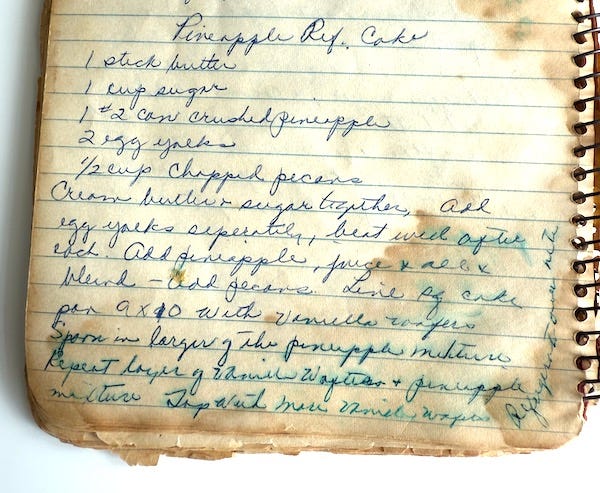 Pineapple Ref. Cake
1 stick butter
1 cup sugar
1 #2 can crushed pineapple
2 egg yolks
1/2 cup chopped pecans
Cream butter + sugar together, add
egg yolks seperately, beat well after
each. Add pineapple, juice & all &
blend - add pecans. Line lg cake
pan 9x10 with vanilla wafers
Spoon in layer of the pineapple mixture
Repeat layer of Vanilla Wafers + pineapple
mixture Top with more Vanilla wafers
Refrigerate over nite